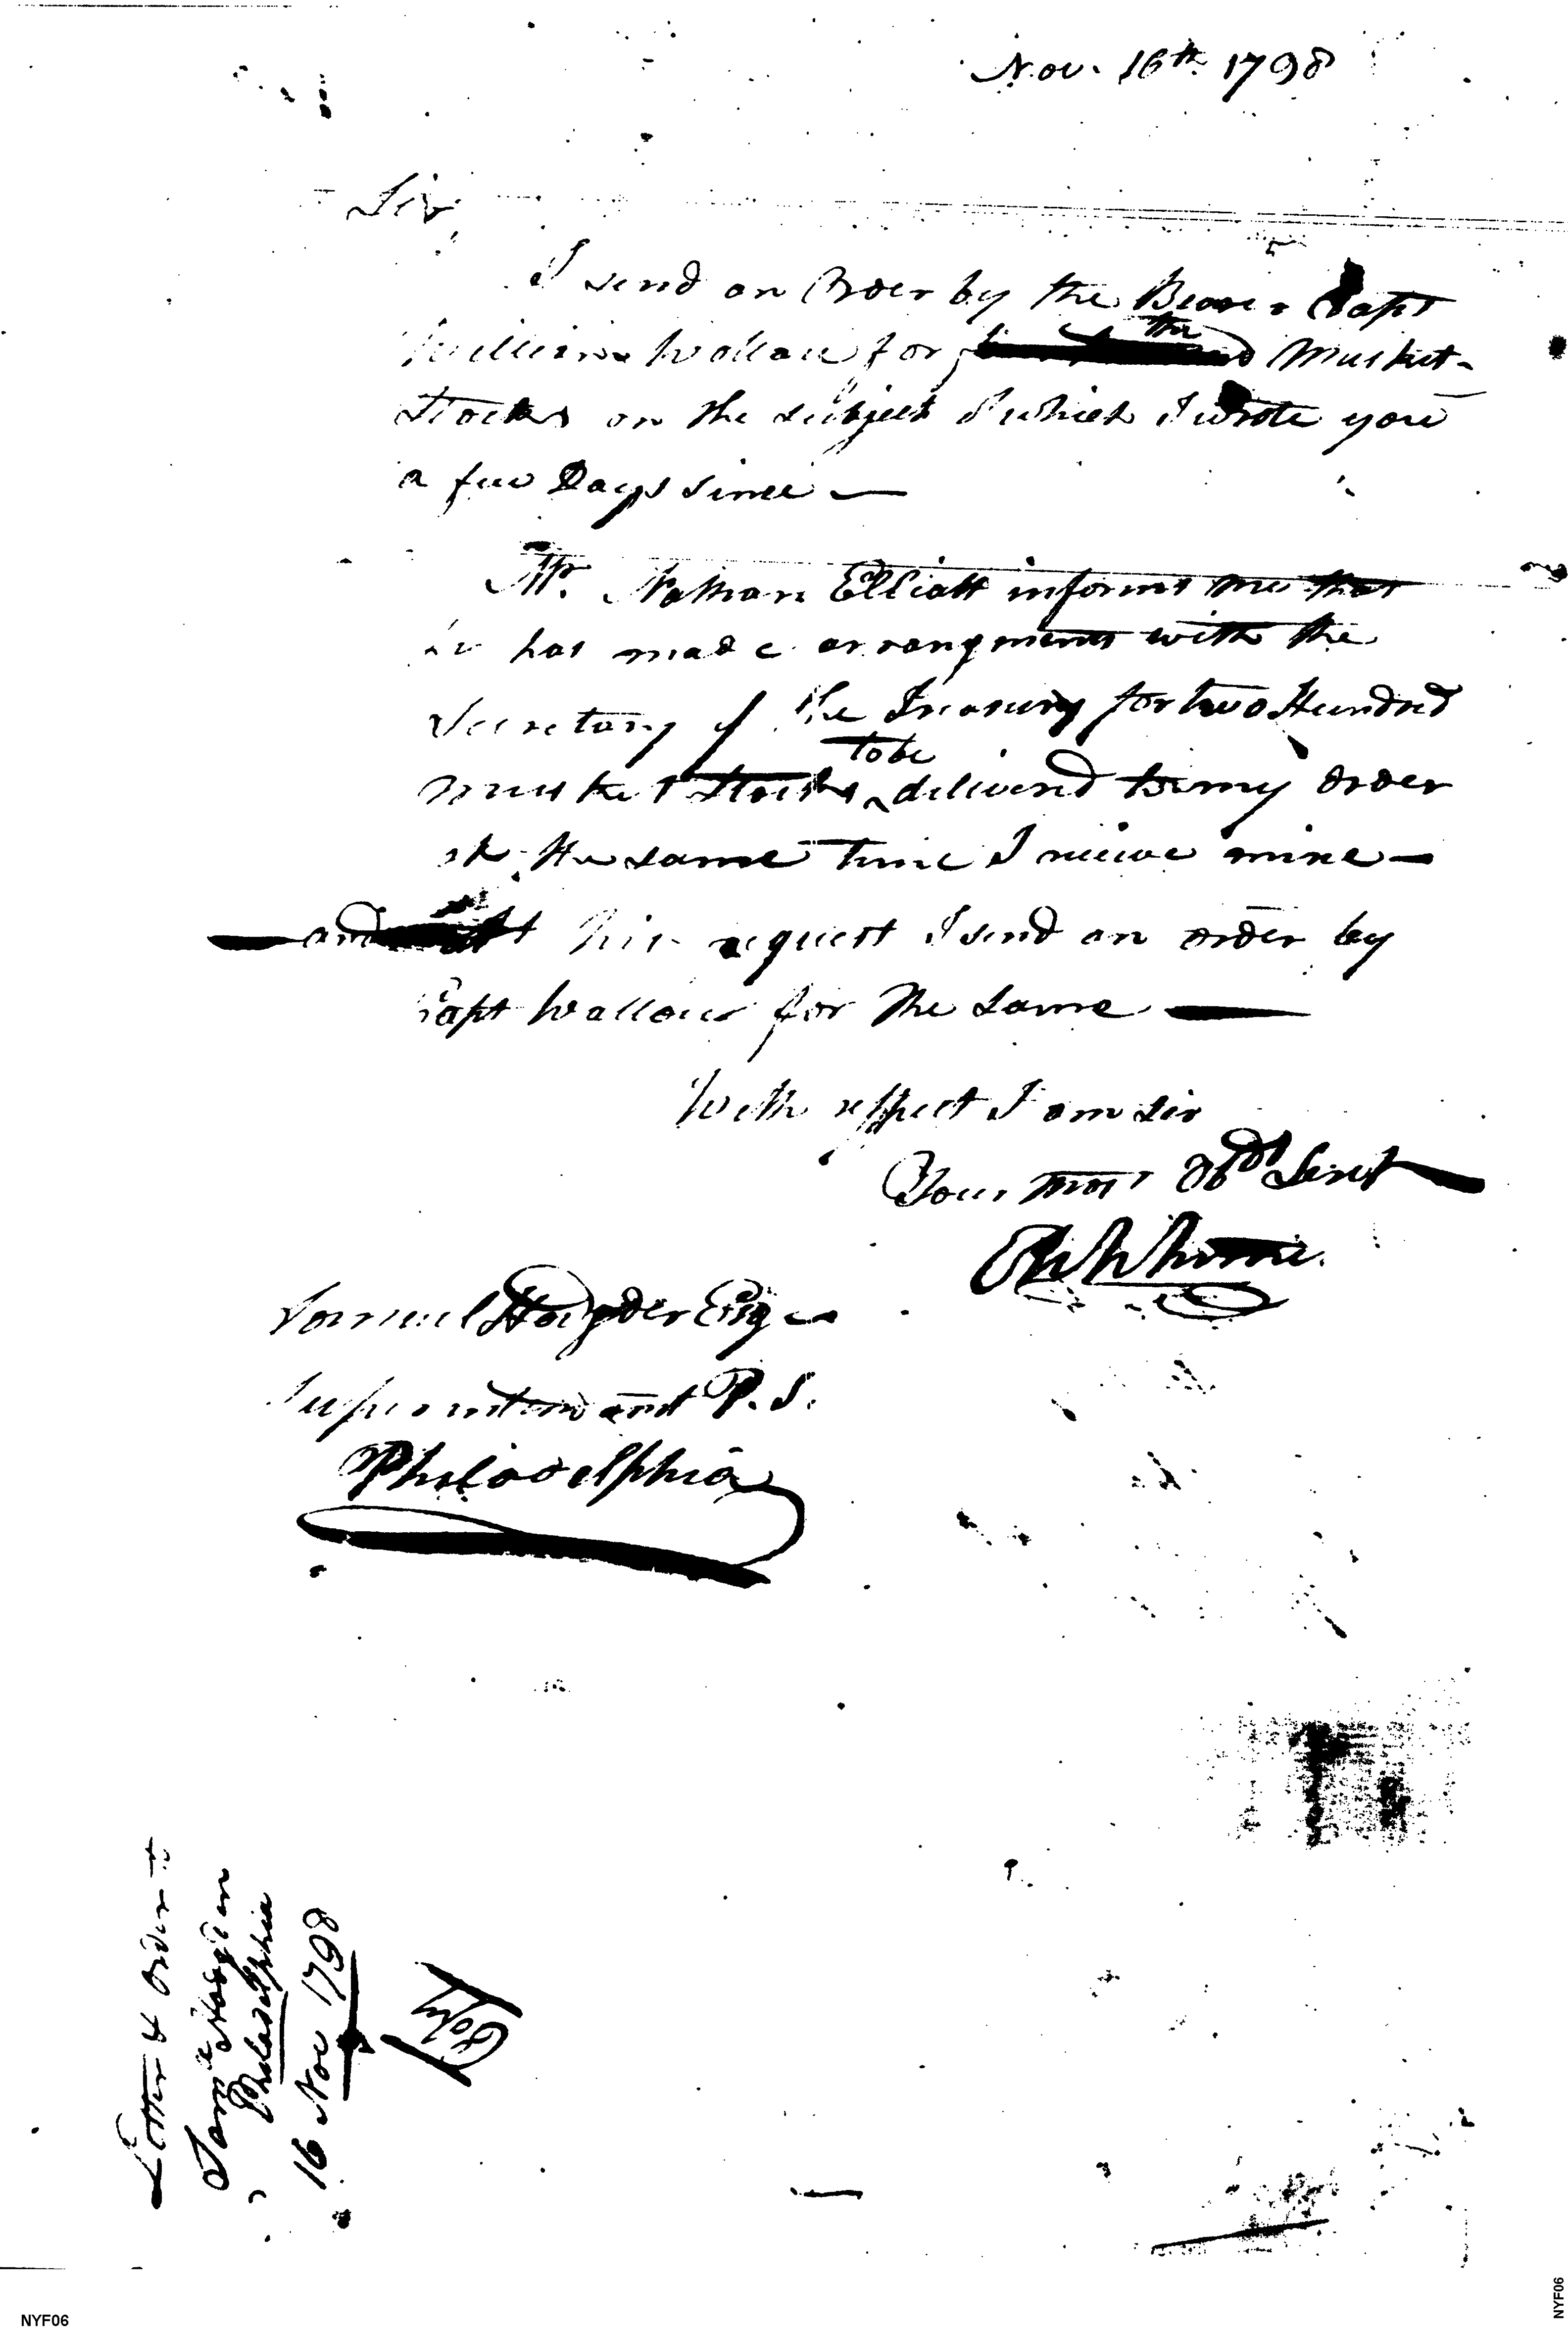 Nov. 16th 1798
Sir
I send an Order by the Bearer Capt
William Wallace for the Musket-
Stocks on the subject of which I wrote you
a few Days since —
Mr. Nathan Elliott informs me that
he has made arrangments with the
Secretary of the Treasury for two Hundred
musket Stocks to be delivered to my order
at the same time I recieve mine —
— and at his request I send an order by
Capt Wallace for the same —
With respect I am Sir
Your most Obdt Servt
Eli Whitney
Samuel Hogdon Esq
Superintendant P. S.
Philadelphia
Letter & Order to
Saml Hodgden
Philadelphia
16 Nov 1798
Copy
NYF06
NYF06